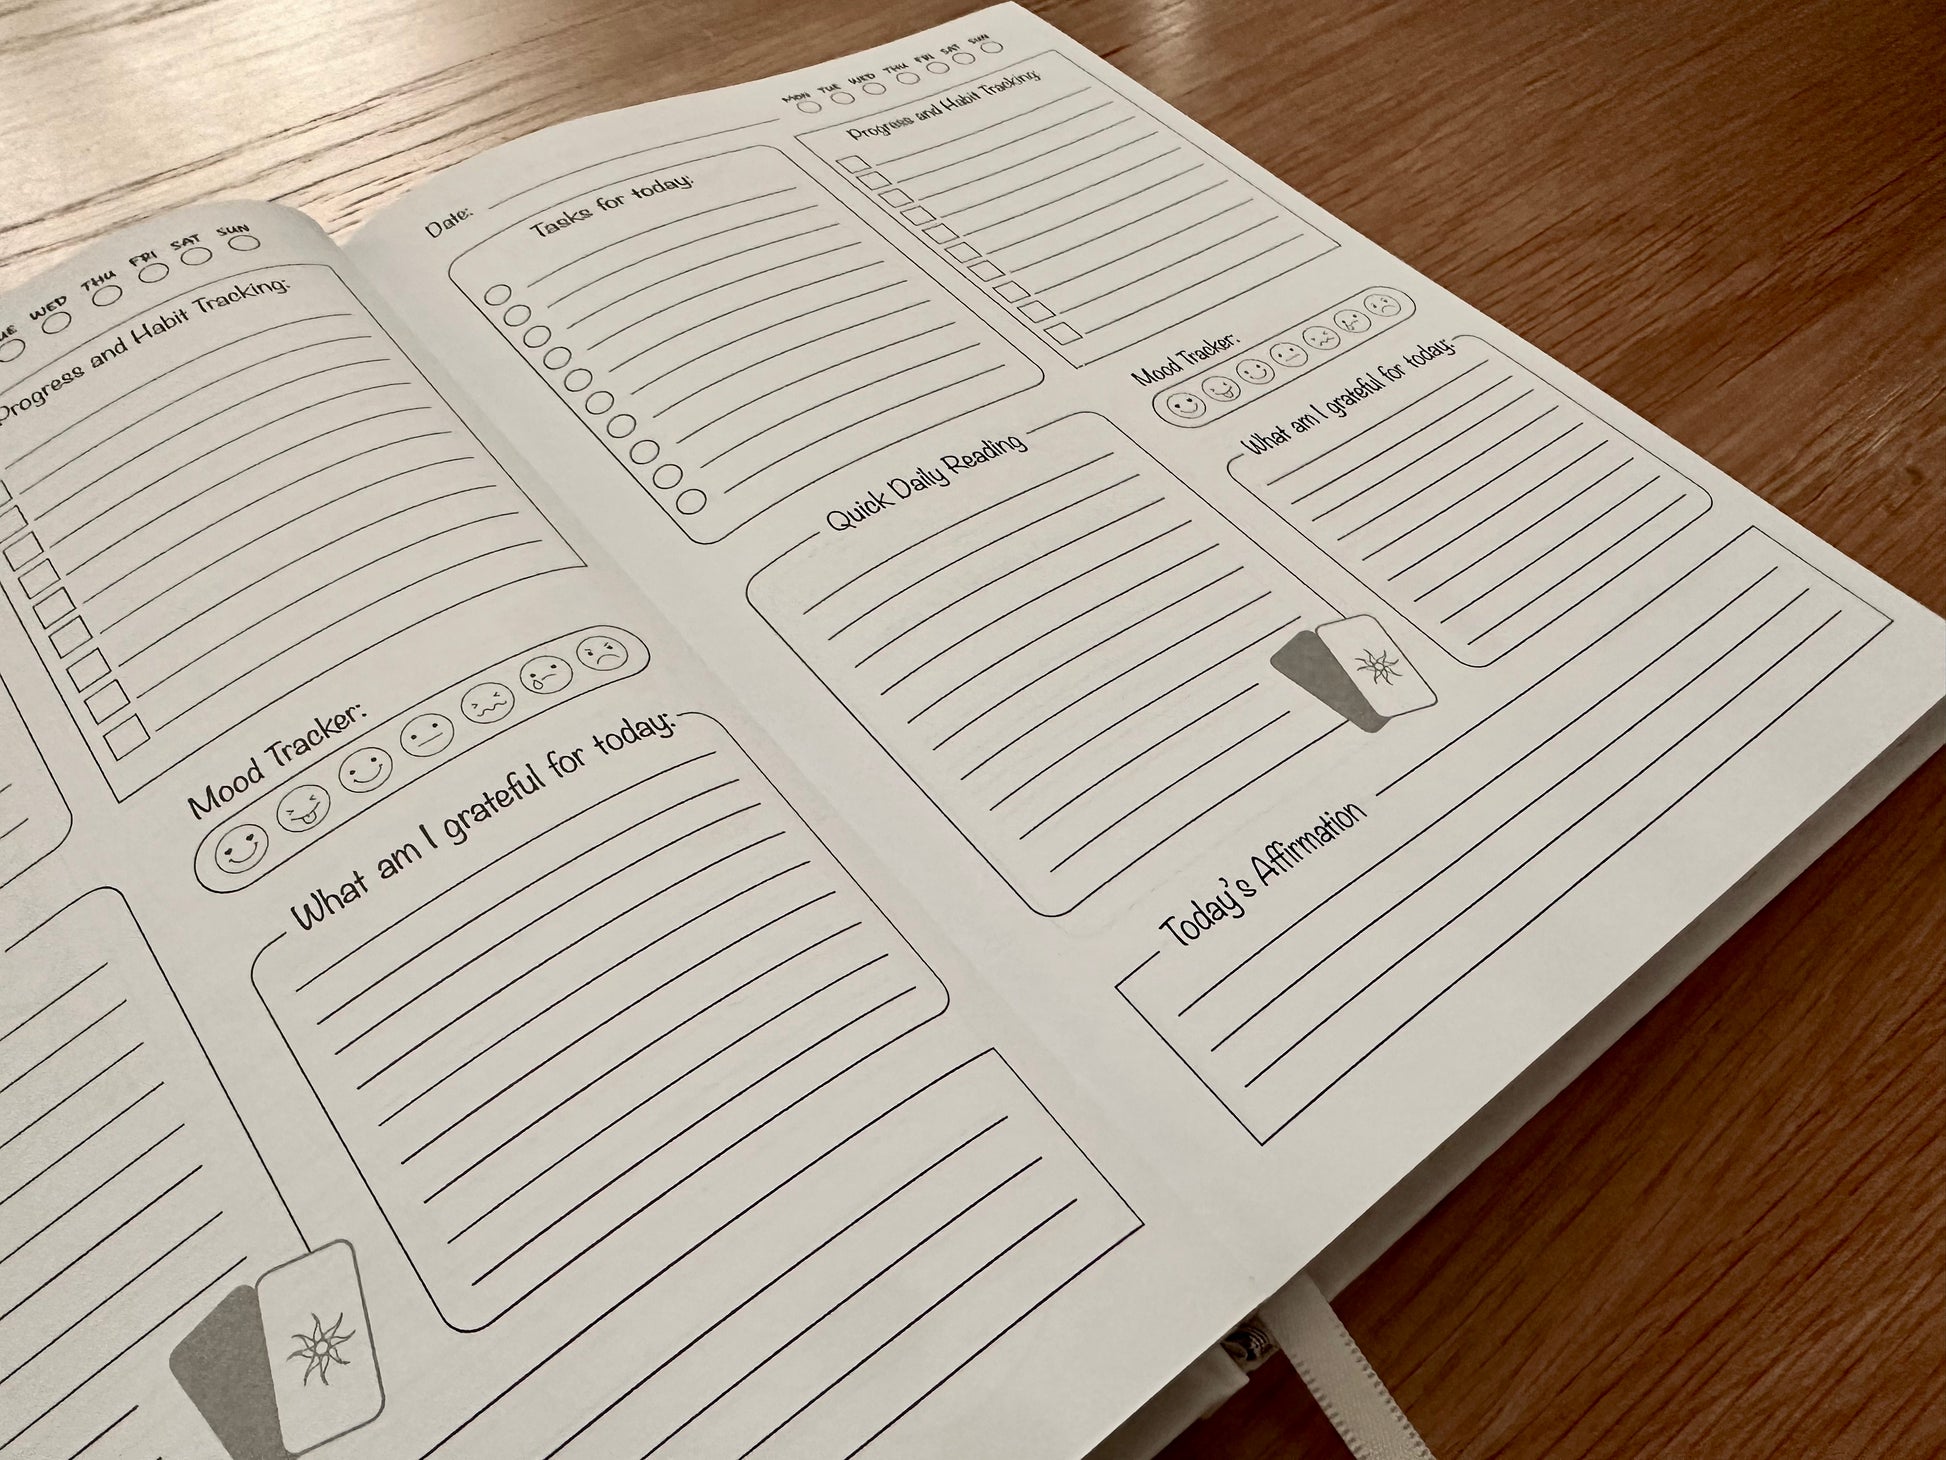 WED THU FRI SAT SUN
Progress and Habit Tracking:
Mood Tracker:
What am I grateful for today:
MON TUE WED THU FRI SAT SUN
Date:
Tasks for today:
Progress and Habit Tracking:
Mood Tracker:
Quick Daily Reading
What am I grateful for today:
Today's Affirmation